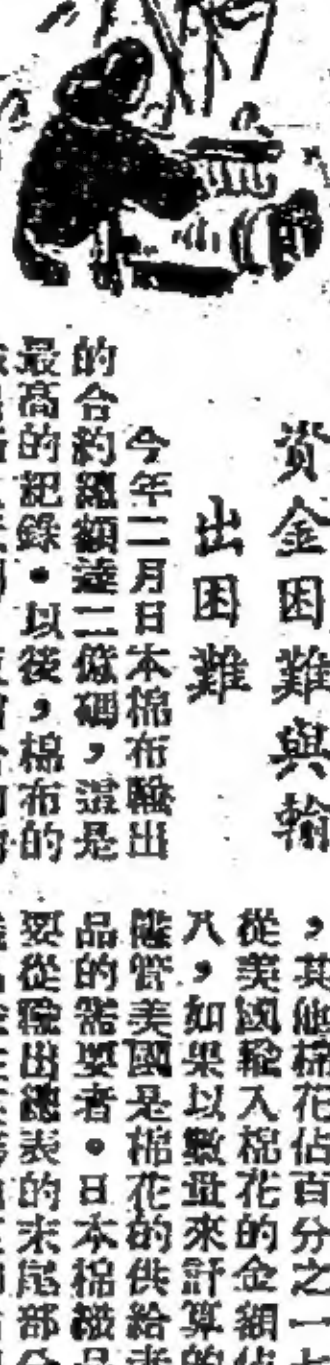 資金困難與輸
出困難
今年二月日本棉布輸出
的合約總額達二億碼，這是
最高的紀錄。以後，棉布的
，其他棉花佔百分之一七
從美國輸入棉花的金額佔
八，如果以數量來計算的
儘管美國是棉花的供給者
品的需要者。日本棉織品
要從輸出總表的末尾部分